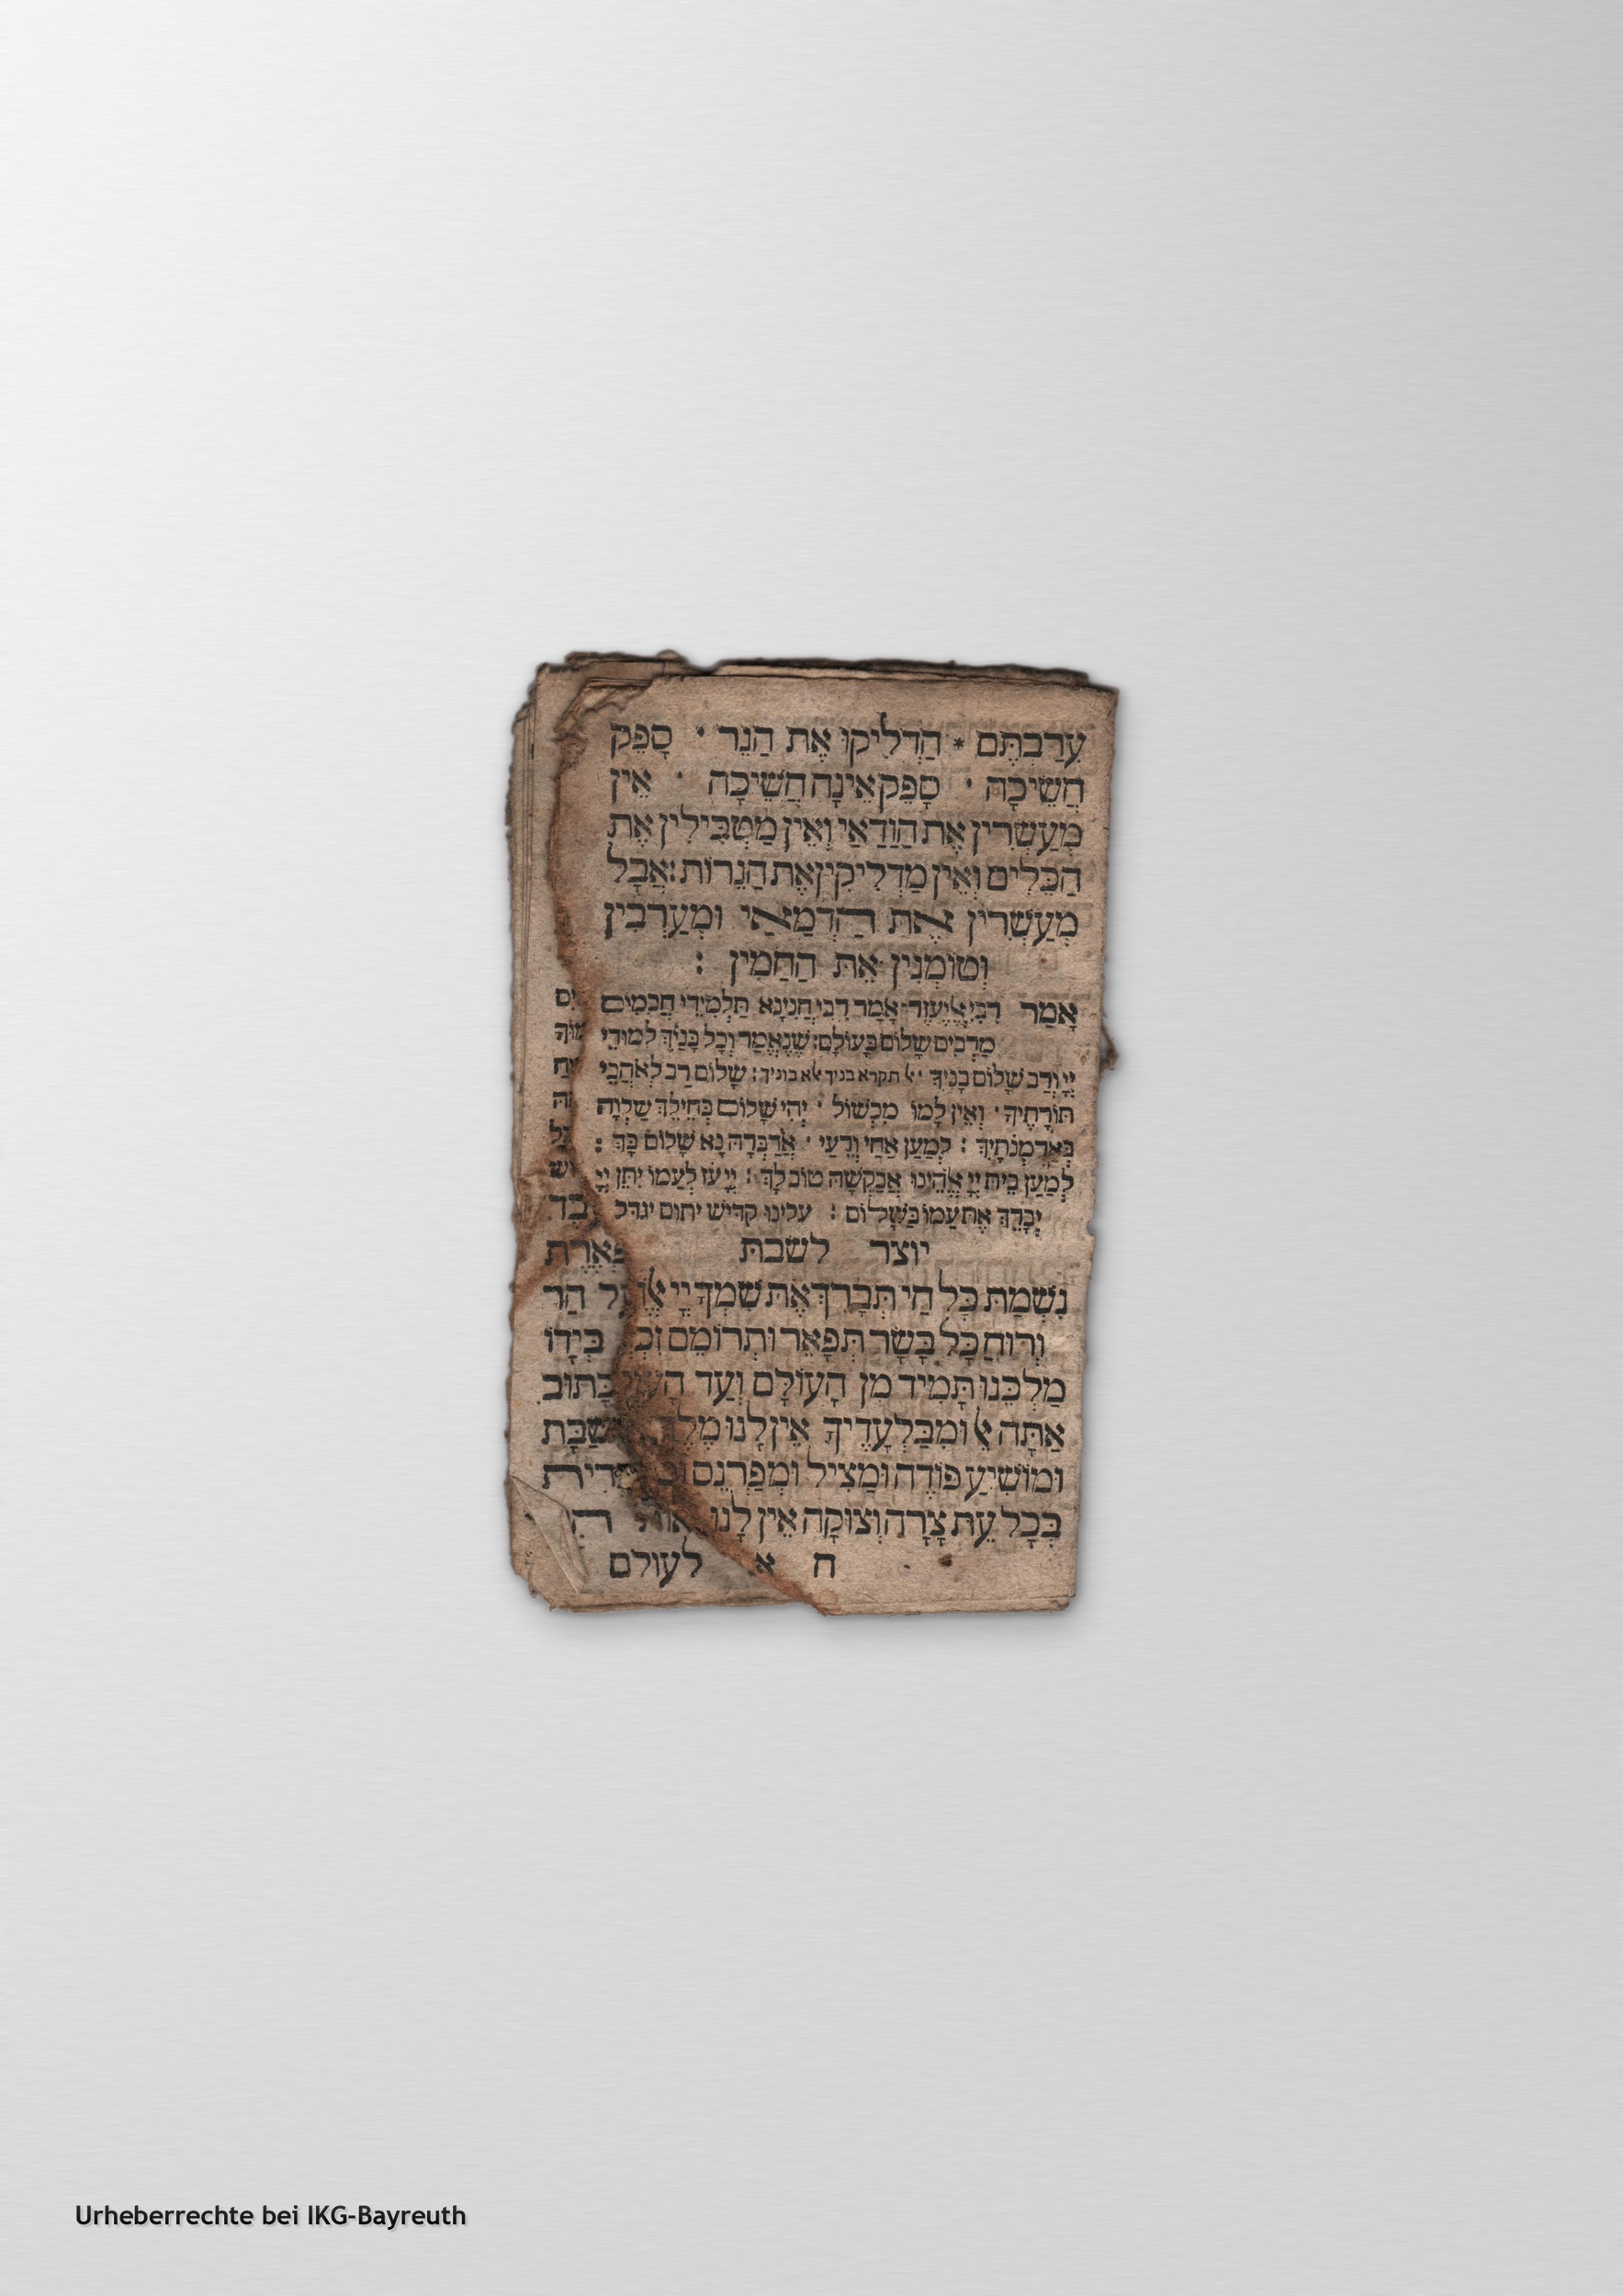 עֲרַבְתֶּם * הַדְלִיקוּ אֶת הַנֵּר · סָפֵק
חֲשֵׁיכָה · סָפֵק אֵינָה חֲשֵׁיכָה · אֵין
מְעַשְּׂרִין אֶת הַוַּדַּאי וְאֵין מַטְבִּילִין אֶת
הַכֵּלִים וְאֵין מַדְלִיקִין אֶת הַנֵּרוֹת : אֲבָל
מְעַשְּׂרִין אֶת הַדְּמַאי וּמְעָרְבִין
וְטוֹמְנִין אֶת הַחַמִּין :
אָמַר רַבִּי אֶלְעָזָר אָמַר רַבִּי חֲנִינָא תַּלְמִידֵי חֲכָמִים
מַרְבִּים שָׁלוֹם בָּעוֹלָם : שֶׁנֶּאֱמַר וְכָל בָּנַיִךְ לִמּוּדֵי
יְיָ וְרַב שְׁלוֹם בָּנָיִךְ · אל תקרא בניך אלא בוניך : שָׁלוֹם רַב לְאֹהֲבֵי
תוֹרָתֶךָ · וְאֵין לָמוֹ מִכְשׁוֹל · יְהִי שָׁלוֹם בְּחֵילֵךְ שַׁלְוָה
בְּאַרְמְנוֹתָיִךְ : לְמַעַן אַחַי וְרֵעָי · אֲדַבְּרָה נָּא שָׁלוֹם בָּךְ :
לְמַעַן בֵּית יְיָ אֱלֹהֵינוּ אֲבַקְשָׁה טוֹב לָךְ : יְיָ עֹז לְעַמּוֹ יִתֵּן יְיָ
יְבָרֵךְ אֶת עַמּוֹ בַשָּׁלוֹם : עלינו קדיש יתום יגדל
יוצר לשבת
נִשְׁמַת כָּל חַי תְּבָרֵךְ אֶת שִׁמְךָ יְיָ
וְרוּחַ כָּל בָּשָׂר תְּפָאֵר וּתְרוֹמֵם בְּיָדוֹ
מַלְכֵּנוּ תָּמִיד מִן הָעוֹלָם וְעַד כָּתוּב
אַתָּה אל וּמִבַּלְעָדֶיךָ אֵין לָנוּ מֶלֶךְ שַׁבָּת
וּמוֹשִׁיעַ פּוֹדֶה וּמַצִּיל וּמְפַרְנֵס
בְּכָל עֵת צָרָה וְצוּקָה אֵין לָנוּ
ח א לעולם
Urheberrechte bei IKG-Bayreuth